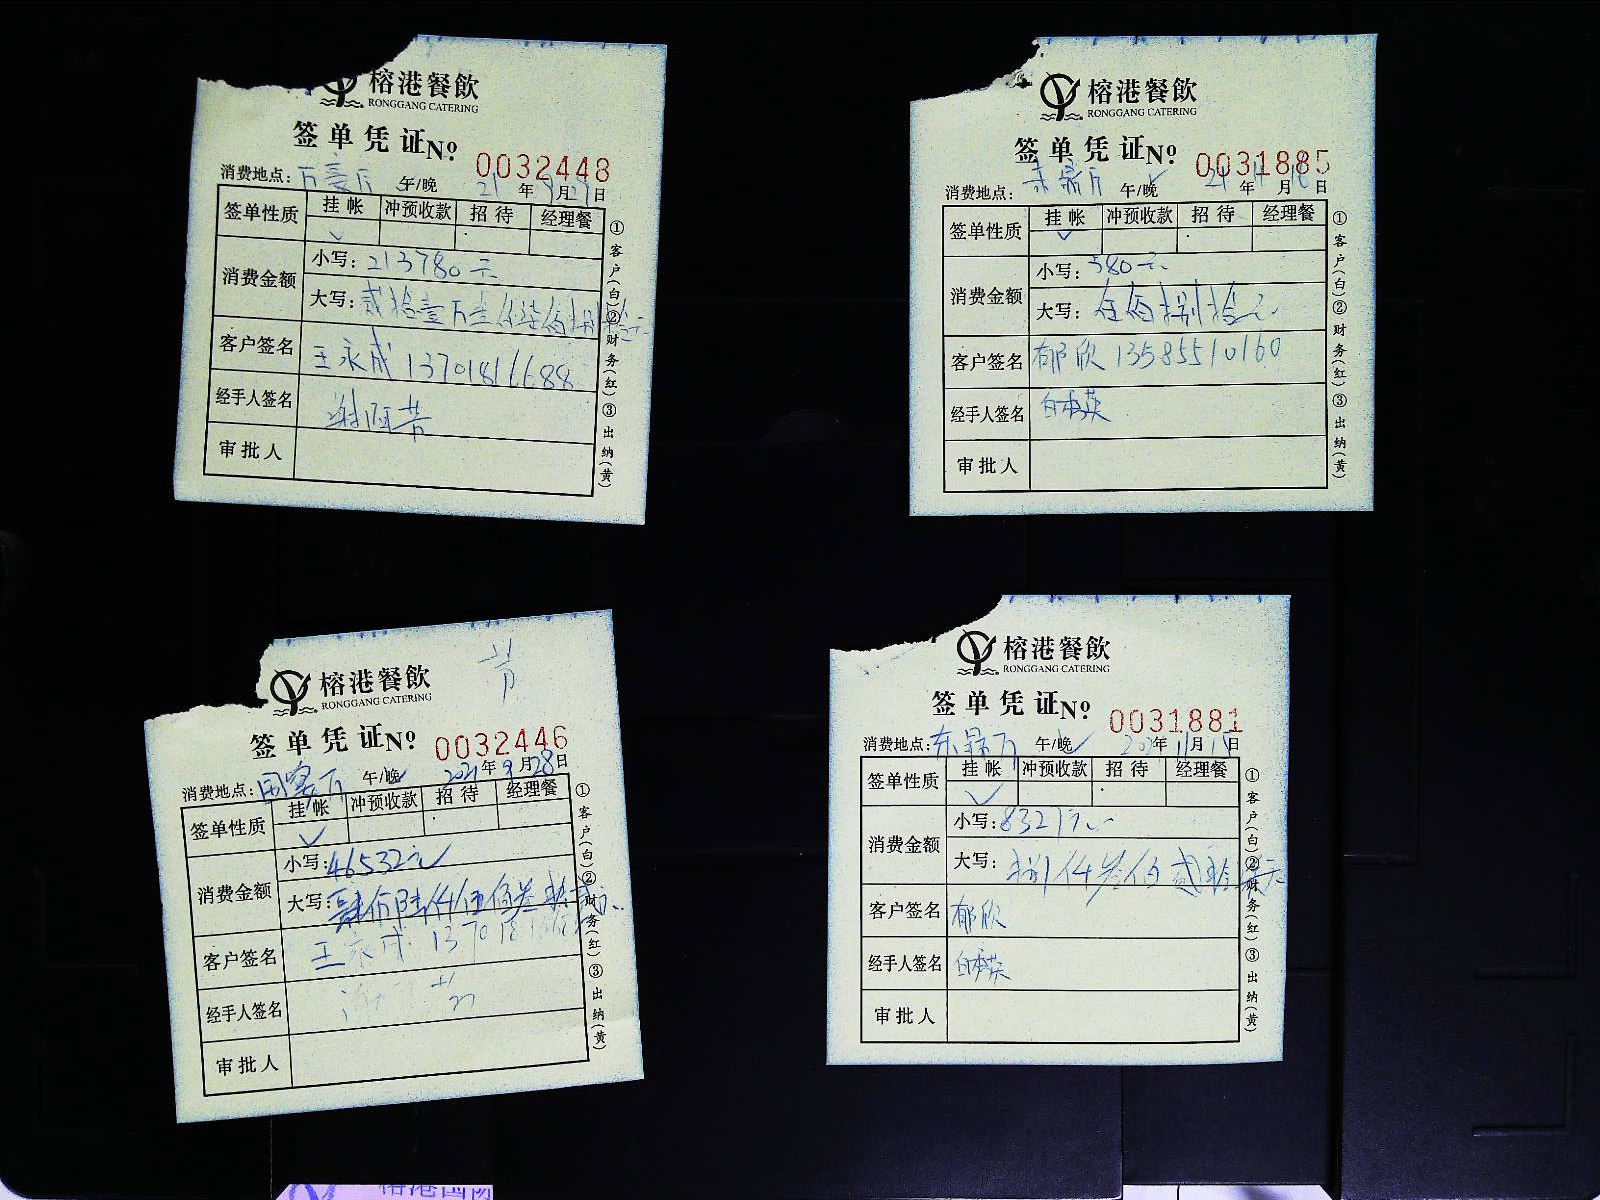 榕港餐飲
RONGGANG CATERING
签单凭证No 0032448
消费地点: 万豪厅 午/晚 21年9月29日
签单性质 挂帐 冲预收款 招待 经理餐
消费金额
小写: 213780元
大写: 贰拾壹万 仟柒佰捌拾元
客户签名 王永成 13701816688
经手人签名
审批人
①客户(白)②财务(红)③出纳(黄)
榕港餐飲
RONGGANG CATERING
签单凭证No 0031885
消费地点: 午/晚 21年 月 日
签单性质 挂帐 冲预收款 招待 经理餐
消费金额
小写: 580元
大写: 伍佰捌拾元
客户签名 郁欣 13585510160
经手人签名 白本英
审批人
①客户(白)②财务(红)③出纳(黄)
榕港餐飲
RONGGANG CATERING
签单凭证No 0032446
消费地点: 国宴厅 午/晚 2021年9月28日
签单性质 挂帐 冲预收款 招待 经理餐
消费金额
小写: 46532元
大写: 肆万陆仟伍佰叁拾贰元
客户签名 王永成
经手人签名
审批人
①客户(白)②财务(红)③出纳(黄)
榕港餐飲
RONGGANG CATERING
签单凭证No 0031881
消费地点: 午/晚 2021年11月 日
签单性质 挂帐 冲预收款 招待 经理餐
消费金额
小写: 8327元
大写: 捌仟叁佰贰拾柒元
客户签名 郁欣
经手人签名 白本英
审批人
①客户(白)②财务(红)③出纳(黄)